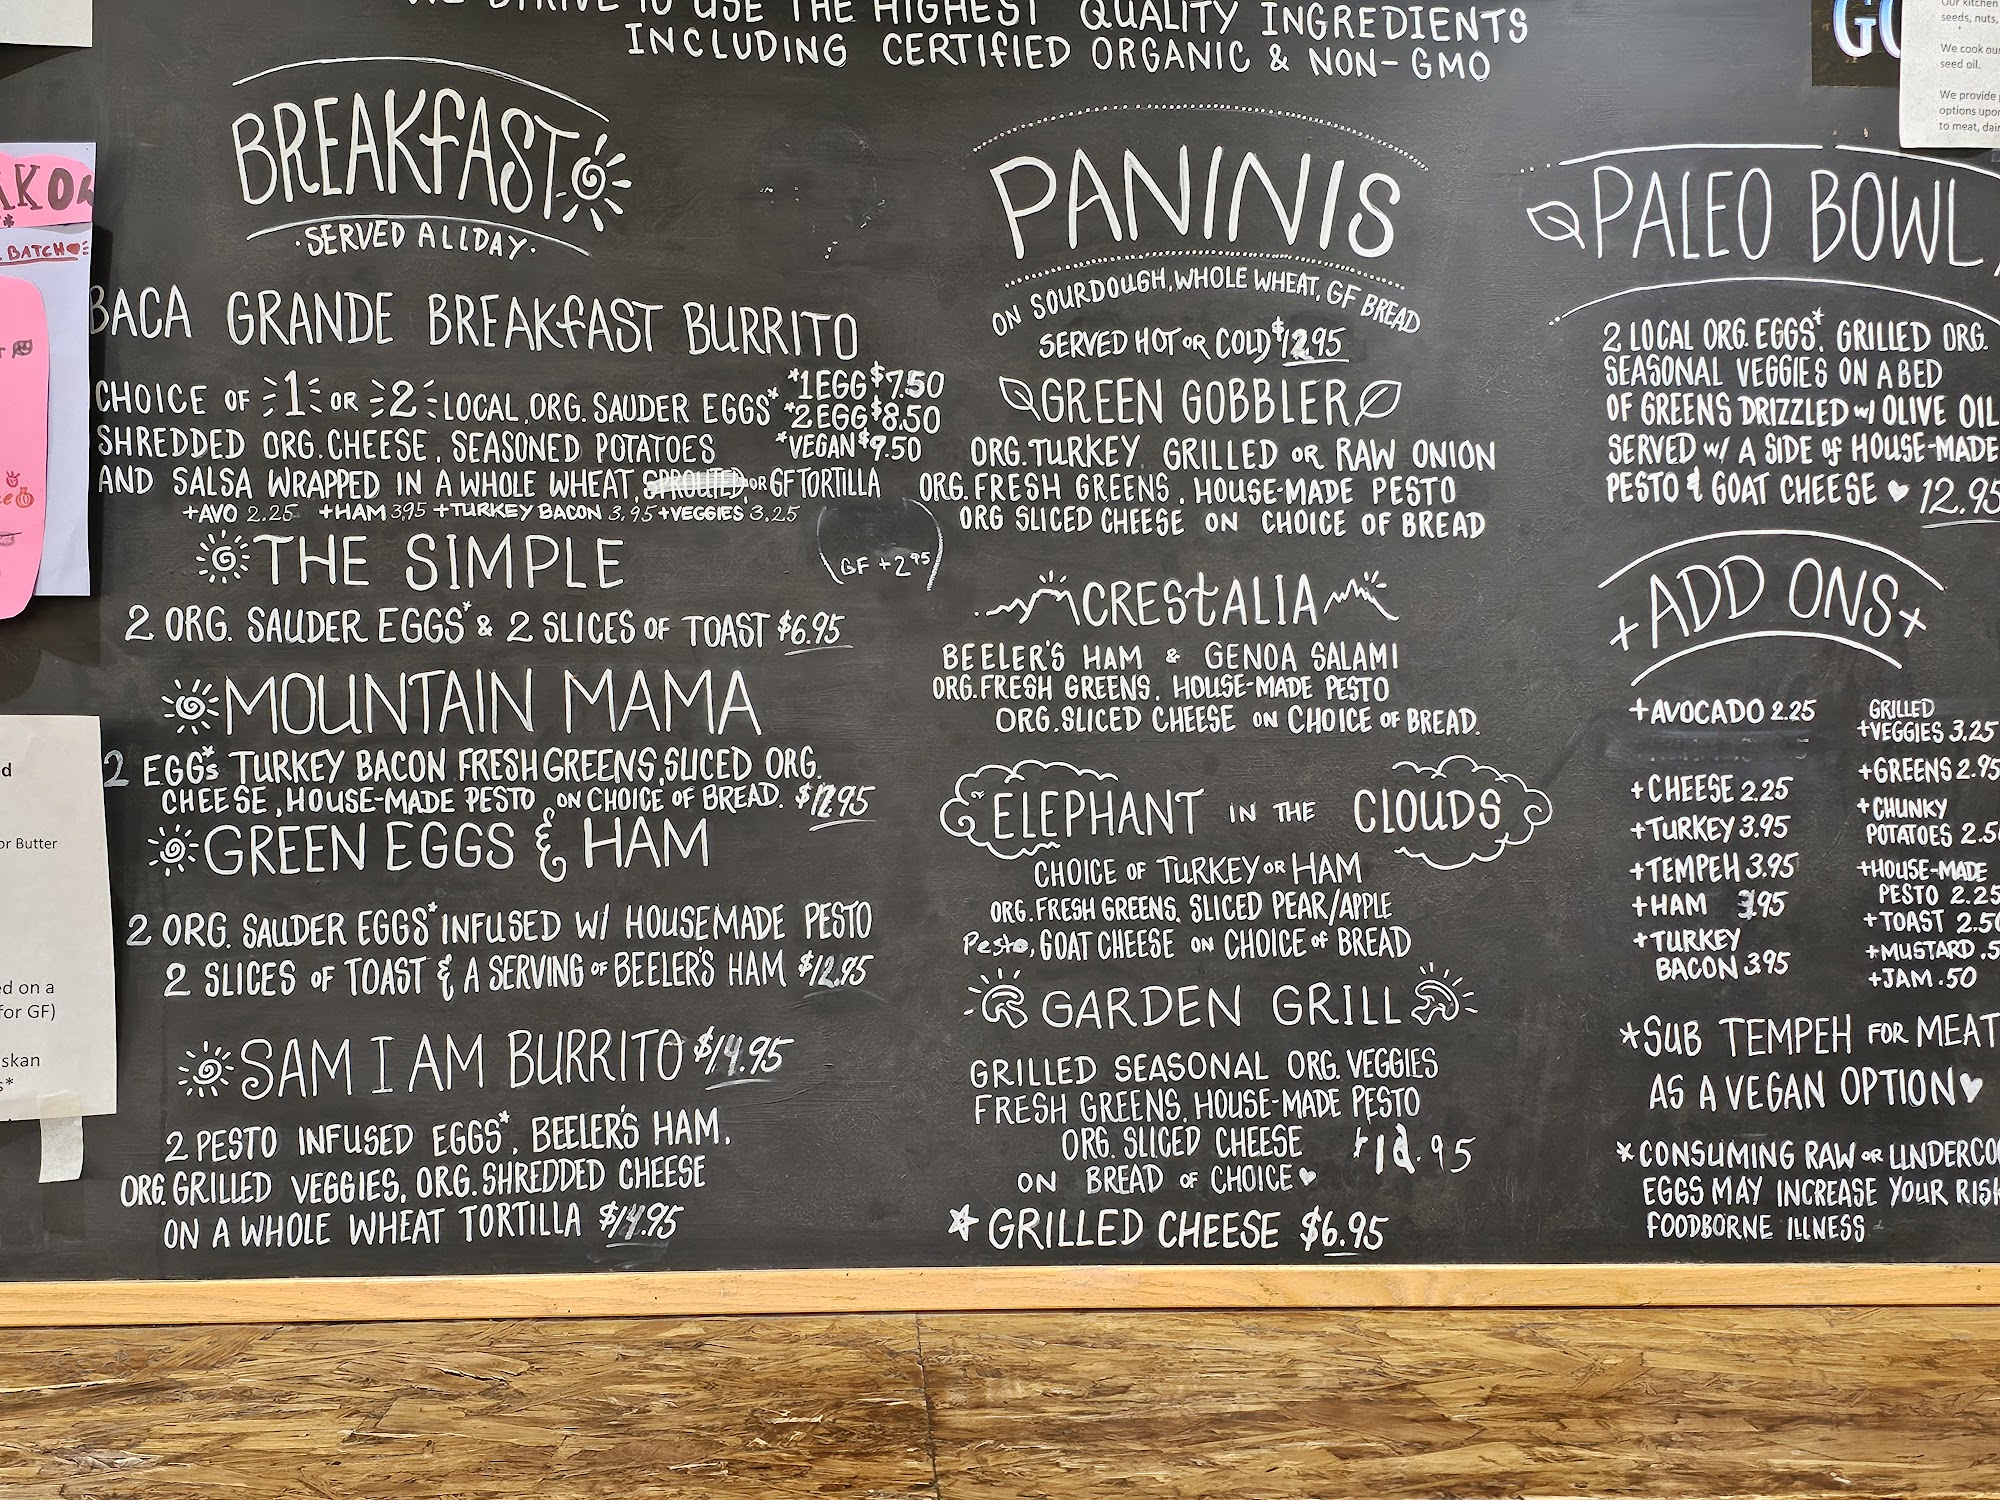 WE STRIVE TO USE THE HIGHEST QUALITY INGREDIENTS
INCLUDING CERTIFIED ORGANIC & NON-GMO
BREAKFAST
·SERVED ALL DAY·
BACA GRANDE BREAKFAST BURRITO
CHOICE OF 1 OR 2 LOCAL, ORG. SAUDER EGGS* *1EGG $7.50
*2EGG $8.50
SHREDDED ORG. CHEESE, SEASONED POTATOES *VEGAN $9.50
AND SALSA WRAPPED IN A WHOLE WHEAT, SPROUTED, OR GF TORTILLA
+AVO 2.25 +HAM 3.95 +TURKEY BACON 3.95 +VEGGIES 3.25
(GF +2.95)
THE SIMPLE
2 ORG. SAUDER EGGS* & 2 SLICES OF TOAST $6.95
MOUNTAIN MAMA
2 EGGS* TURKEY BACON FRESH GREENS, SLICED ORG.
CHEESE, HOUSE-MADE PESTO ON CHOICE OF BREAD. $12.95
GREEN EGGS & HAM
2 ORG. SAUDER EGGS* INFUSED W/ HOUSEMADE PESTO
2 SLICES OF TOAST & A SERVING OF BEELER'S HAM $12.95
SAM I AM BURRITO $14.95
2 PESTO INFUSED EGGS*, BEELER'S HAM,
ORG. GRILLED VEGGIES, ORG. SHREDDED CHEESE
ON A WHOLE WHEAT TORTILLA $14.95
PANINIS
ON SOURDOUGH, WHOLE WHEAT, GF BREAD
SERVED HOT OR COLD $12.95
GREEN GOBBLER
ORG. TURKEY, GRILLED OR RAW ONION
ORG. FRESH GREENS, HOUSE-MADE PESTO
ORG SLICED CHEESE ON CHOICE OF BREAD
CRESTALIA
BEELER'S HAM & GENOA SALAMI
ORG. FRESH GREENS, HOUSE-MADE PESTO
ORG. SLICED CHEESE ON CHOICE OF BREAD.
ELEPHANT IN THE CLOUDS
CHOICE OF TURKEY OR HAM
ORG. FRESH GREENS, SLICED PEAR/APPLE
Pesto, GOAT CHEESE ON CHOICE OF BREAD
GARDEN GRILL
GRILLED SEASONAL ORG. VEGGIES
FRESH GREENS, HOUSE-MADE PESTO
ORG. SLICED CHEESE
12.95
ON BREAD OF CHOICE
GRILLED CHEESE $6.95
PALEO BOWL
2 LOCAL ORG. EGGS*, GRILLED ORG.
SEASONAL VEGGIES ON A BED
OF GREENS DRIZZLED w/ OLIVE OIL
SERVED w/ A SIDE of HOUSE-MADE
PESTO & GOAT CHEESE 12.95
+ADD ONS+
+AVOCADO 2.25
+CHEESE 2.25
+TURKEY 3.95
+TEMPEH 3.95
+HAM 3.95
+TURKEY
BACON 3.95
GRILLED
+VEGGIES 3.25
+GREENS 2.95
+CHUNKY
POTATOES 2.50
+HOUSE-MADE
PESTO 2.25
+TOAST 2.50
+MUSTARD .5
+JAM .50
*SUB TEMPEH FOR MEAT
AS A VEGAN OPTION
*CONSUMING RAW OR UNDERCOO
EGGS MAY INCREASE YOUR RISK
FOODBORNE ILLNESS
Our kitchen
seeds, nuts,
We cook our
seed oil.
We provide
options upon
to meat, dair
BATCH
or Butter
ed on a
for GF)
skan